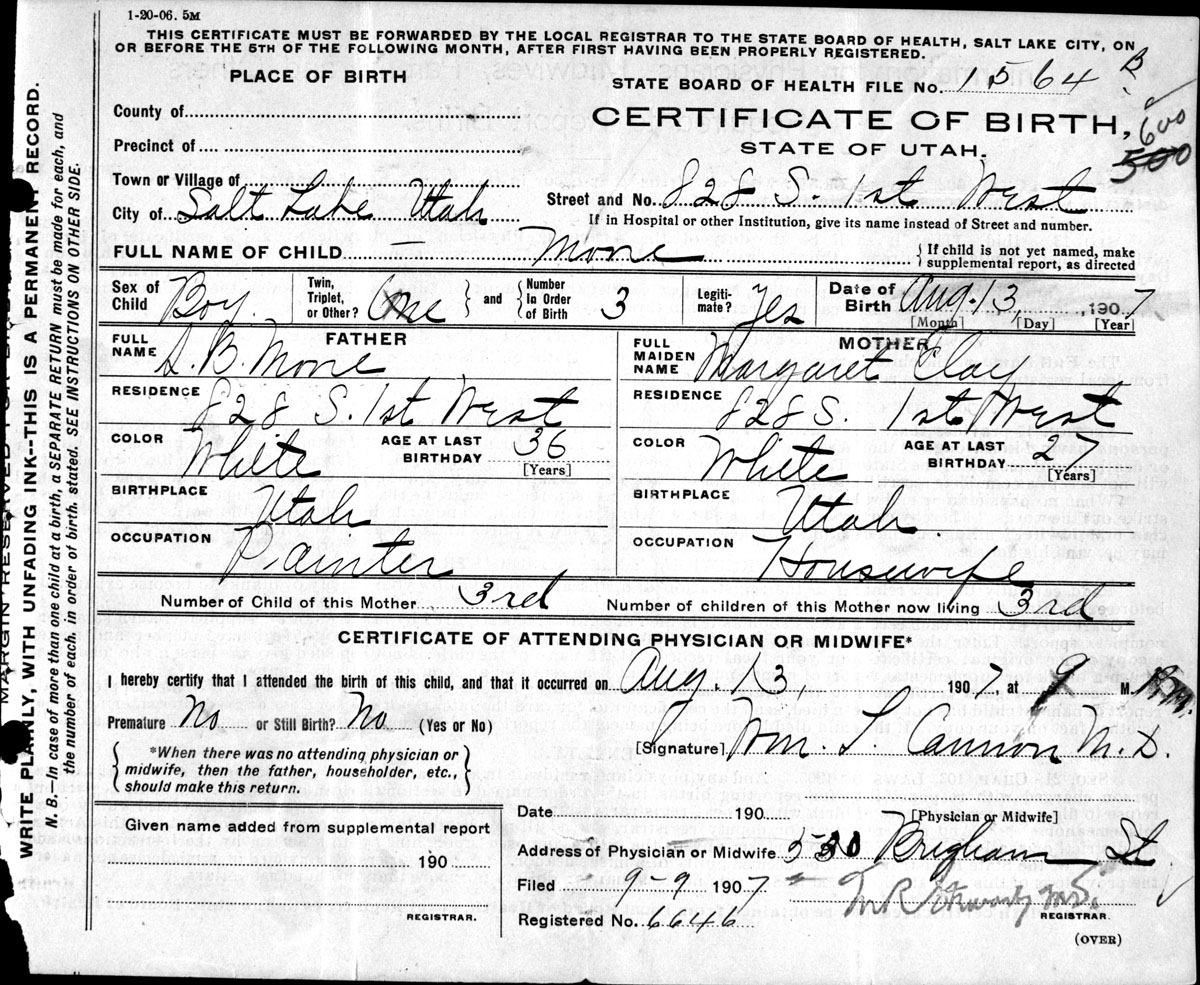 1-20-06. 5M
THIS CERTIFICATE MUST BE FORWARDED BY THE LOCAL REGISTRAR TO THE STATE BOARD OF HEALTH, SALT LAKE CITY, ON
OR BEFORE THE 5TH OF THE FOLLOWING MONTH, AFTER FIRST HAVING BEEN PROPERLY REGISTERED.
PLACE OF BIRTH
STATE BOARD OF HEALTH FILE No. 1564 B
County of
CERTIFICATE OF BIRTH,
600
Precinct of
STATE OF UTAH.
500
Town or Village of
Street and No. 828 S. 1st West
City of Salt Lake Utah
If in Hospital or other Institution, give its name instead of Street and number.
FULL NAME OF CHILD — Moore
If child is not yet named, make
supplemental report, as directed
Sex of Child Boy
Twin, Triplet, or Other? One
and Number in Order of Birth 3
Legiti-mate? Yes
Date of Birth Aug. 13, 1907
[Month] [Day] [Year]
FATHER
FULL NAME S. B. Moore
RESIDENCE 828 S. 1st West
COLOR White
AGE AT LAST BIRTHDAY 36
[Years]
BIRTHPLACE Utah
OCCUPATION Painter
MOTHER
FULL MAIDEN NAME Margaret Clay
RESIDENCE 828 S. 1st West
COLOR White
AGE AT LAST BIRTHDAY 27
[Years]
BIRTHPLACE Utah
OCCUPATION Housewife
Number of Child of this Mother 3rd
Number of children of this Mother now living 3rd
CERTIFICATE OF ATTENDING PHYSICIAN OR MIDWIFE*
I hereby certify that I attended the birth of this child, and that it occurred on Aug. 13, 1907, at M.
Premature No or Still Birth? No (Yes or No)
*When there was no attending physician or
midwife, then the father, householder, etc.,
should make this return.
[Signature] Wm. T. Cannon M.D.
[Physician or Midwife]
Given name added from supplemental report
190
REGISTRAR.
Date 190
Address of Physician or Midwife 530 Brigham St
Filed 9-9 1907
M.D.
REGISTRAR.
Registered No. 6646
(OVER)
MARGIN RESERVED FOR
WRITE PLAINLY, WITH UNFADING INK--THIS IS A PERMANENT RECORD.
N. B.—In case of more than one child at a birth, a SEPARATE RETURN must be made for each, and
the number of each, in order of birth, stated. SEE INSTRUCTIONS ON OTHER SIDE.